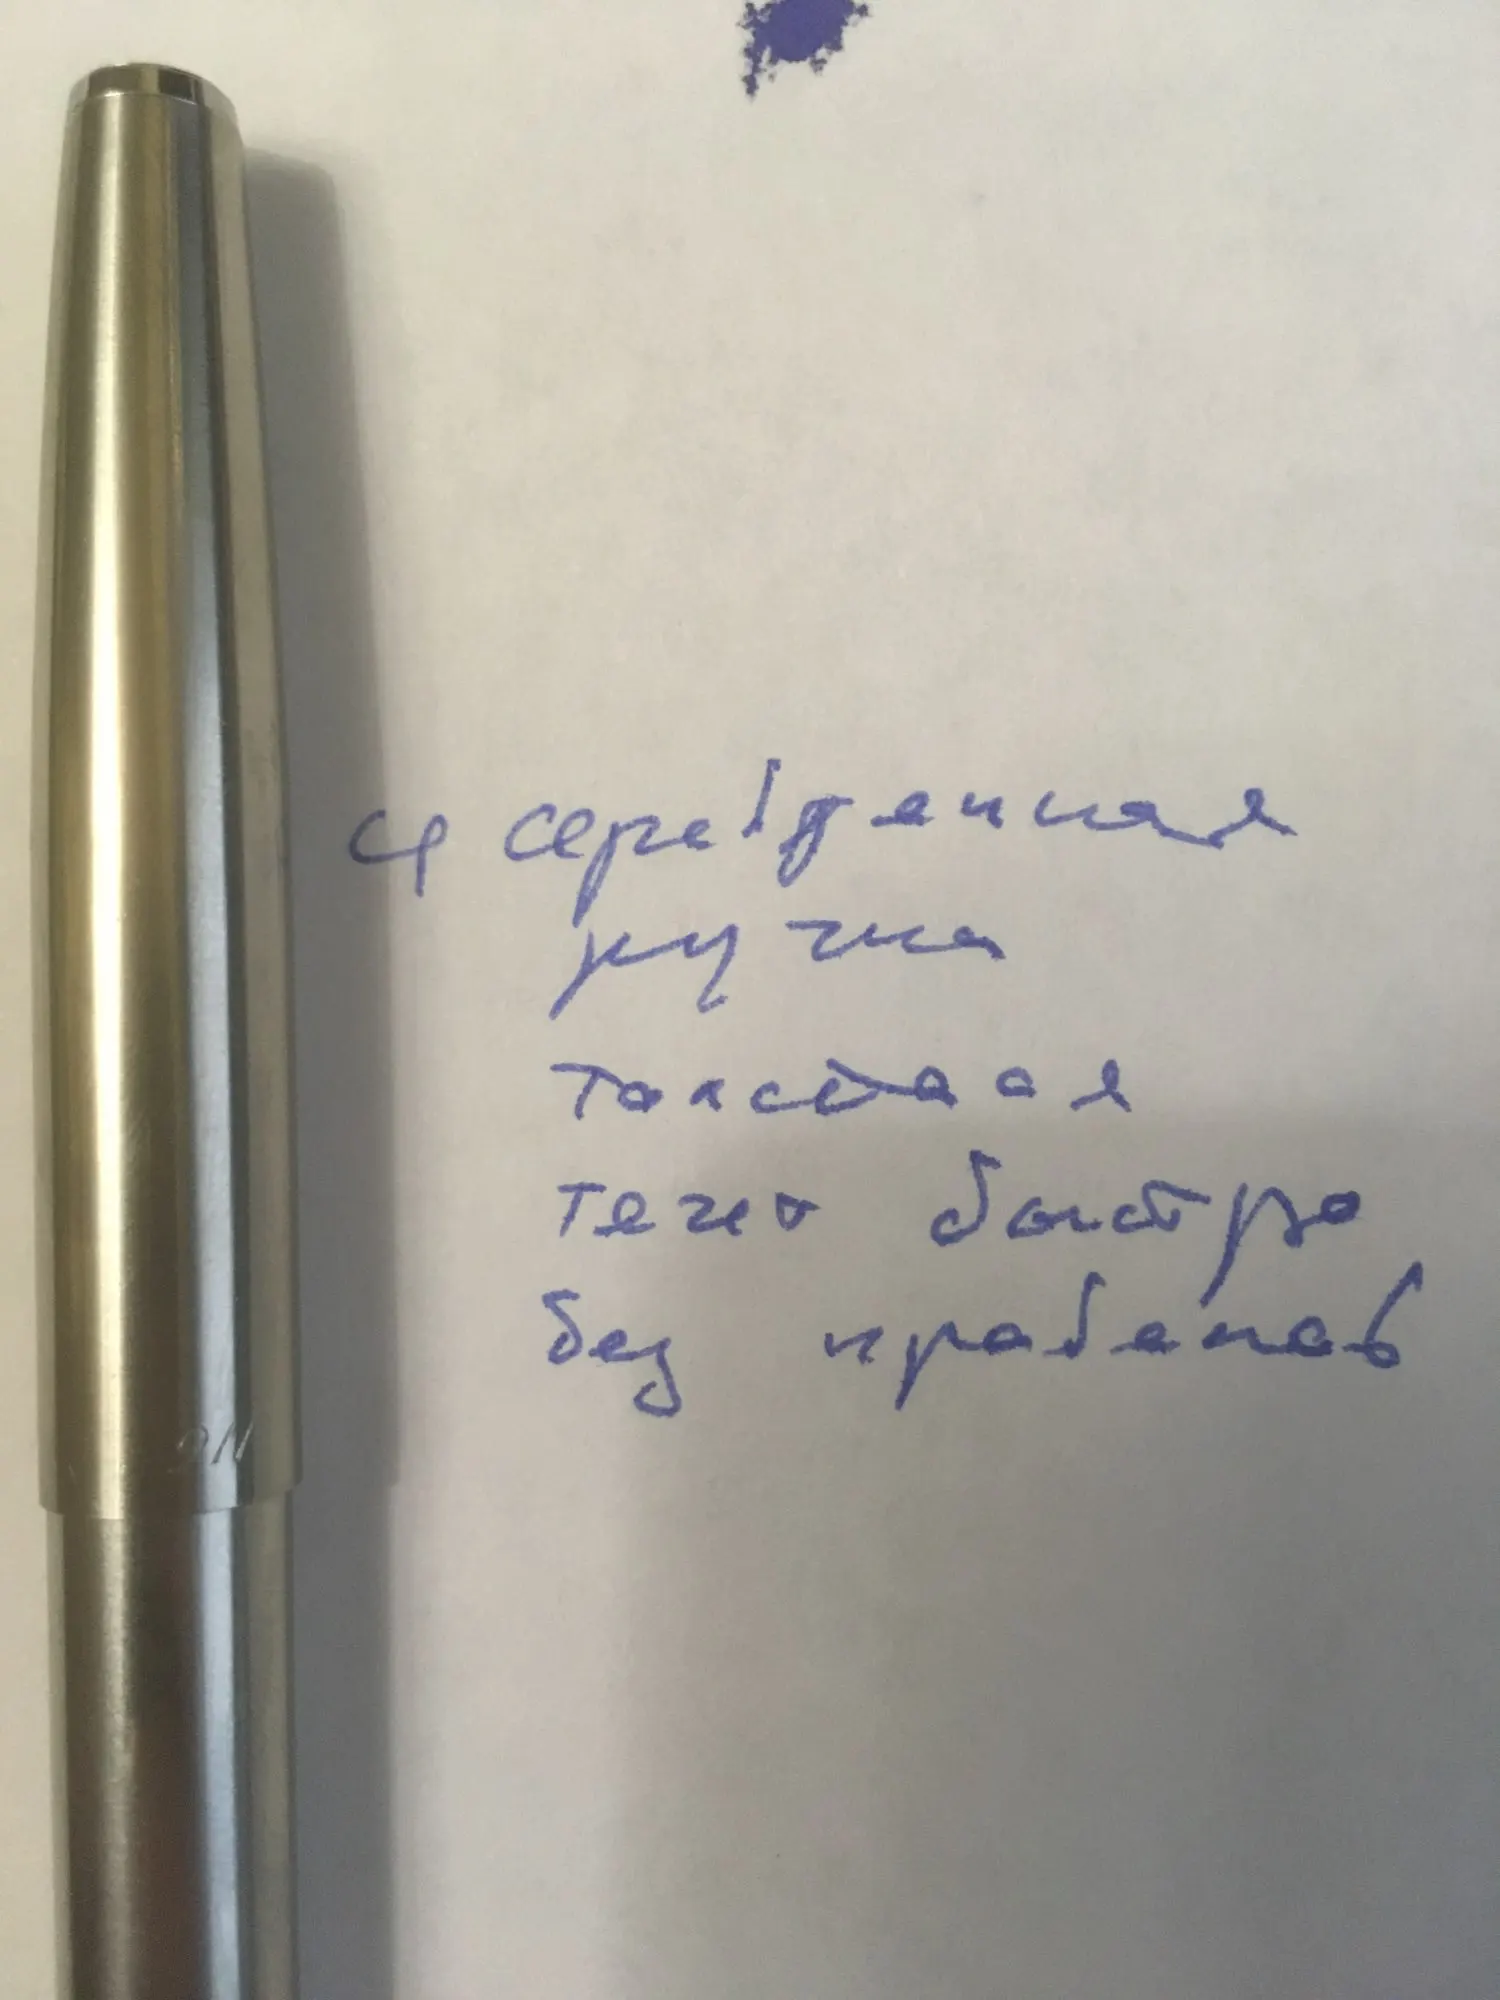 серебренная
ручка
толстая
течет быстро
без пробелов